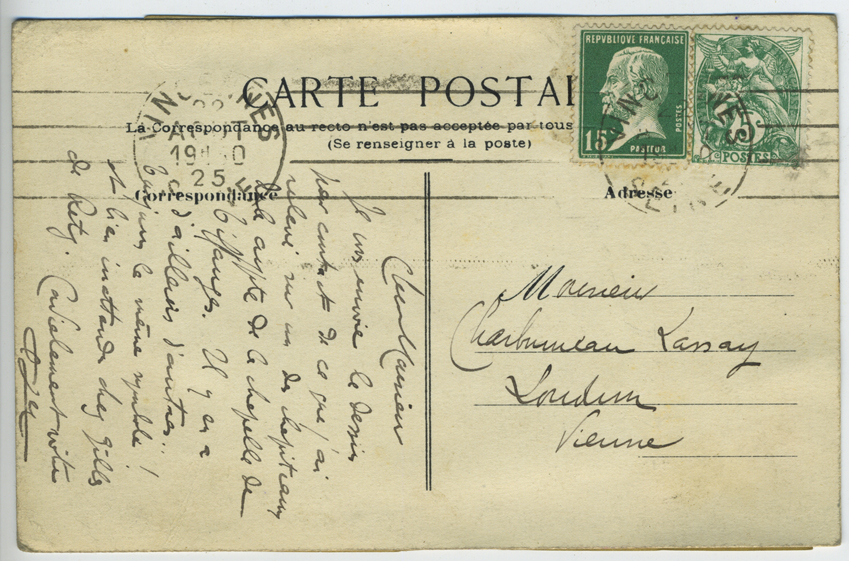 CARTE POSTAL
La Correspondance au recto n'est pas acceptée par tous
(Se renseigner à la poste)
Correspondance
Adresse
REPVBLIQUE FRANÇAISE
15
POSTES
PASTEUR
POSTES
VINCENNES
22
AOUT
25
Cher Monsieur
Je vous envoie le dessin
par contact de ce que j'ai
relevé sur un des chapiteaux
de la crypte de la chapelle de
Il y en a
d'ailleurs d'autres..
toujours le même symbole!
et bien inattendu chez Gilles
de Retz. Cordialement votre
Monsieur
Charbonneau Lassay
Loudun
Vienne